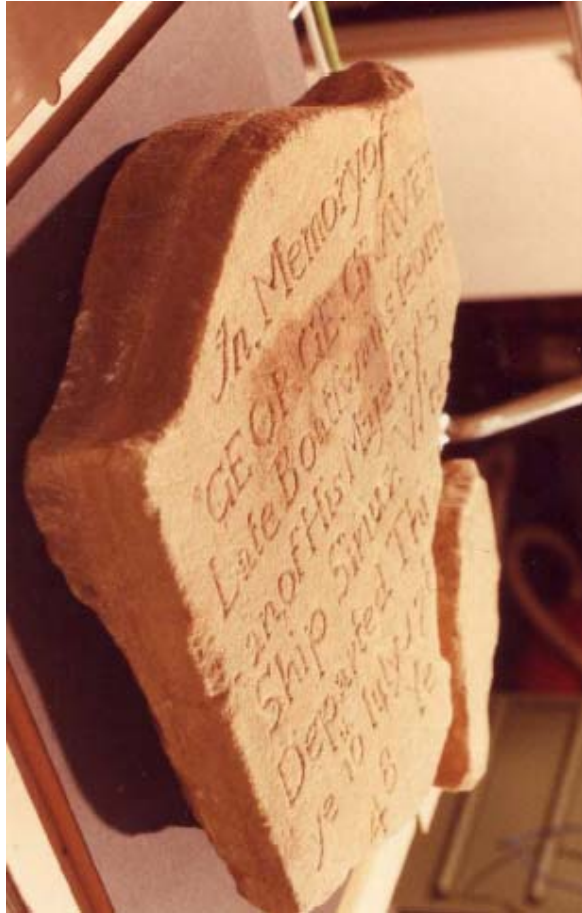 In Memory of
GEORGE GRAVE
Late Boatswains Yeom
an of His Majestys
Ship Sirius Who
Departed Thi
ye 10 July 17
48 Ye